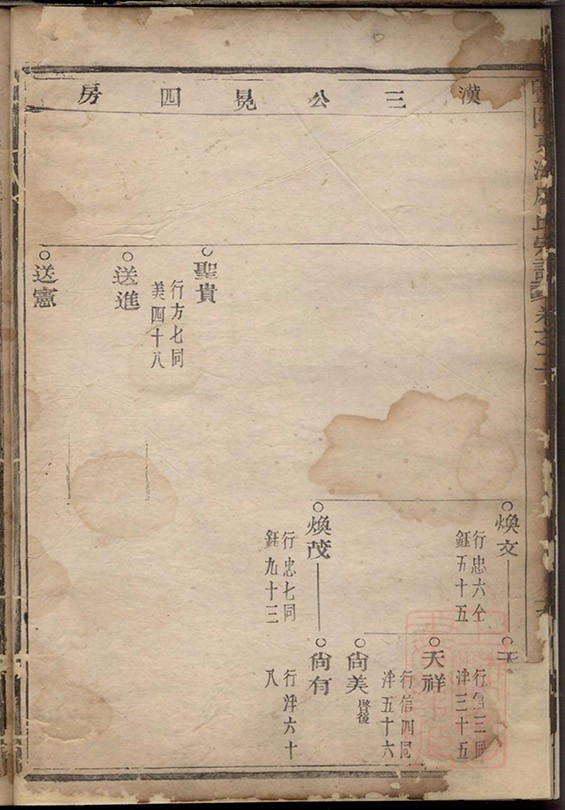 漢三公晃四房
煥文
行忠六仝
鈺五十五
煥茂
行忠七同
鈺九十三
三同
泮三十五
天祥
行信四同
泮五十六
尙美
啓後
尙有
行泮六十
八
聖貴
行方七同
美四十八
送進
送憲